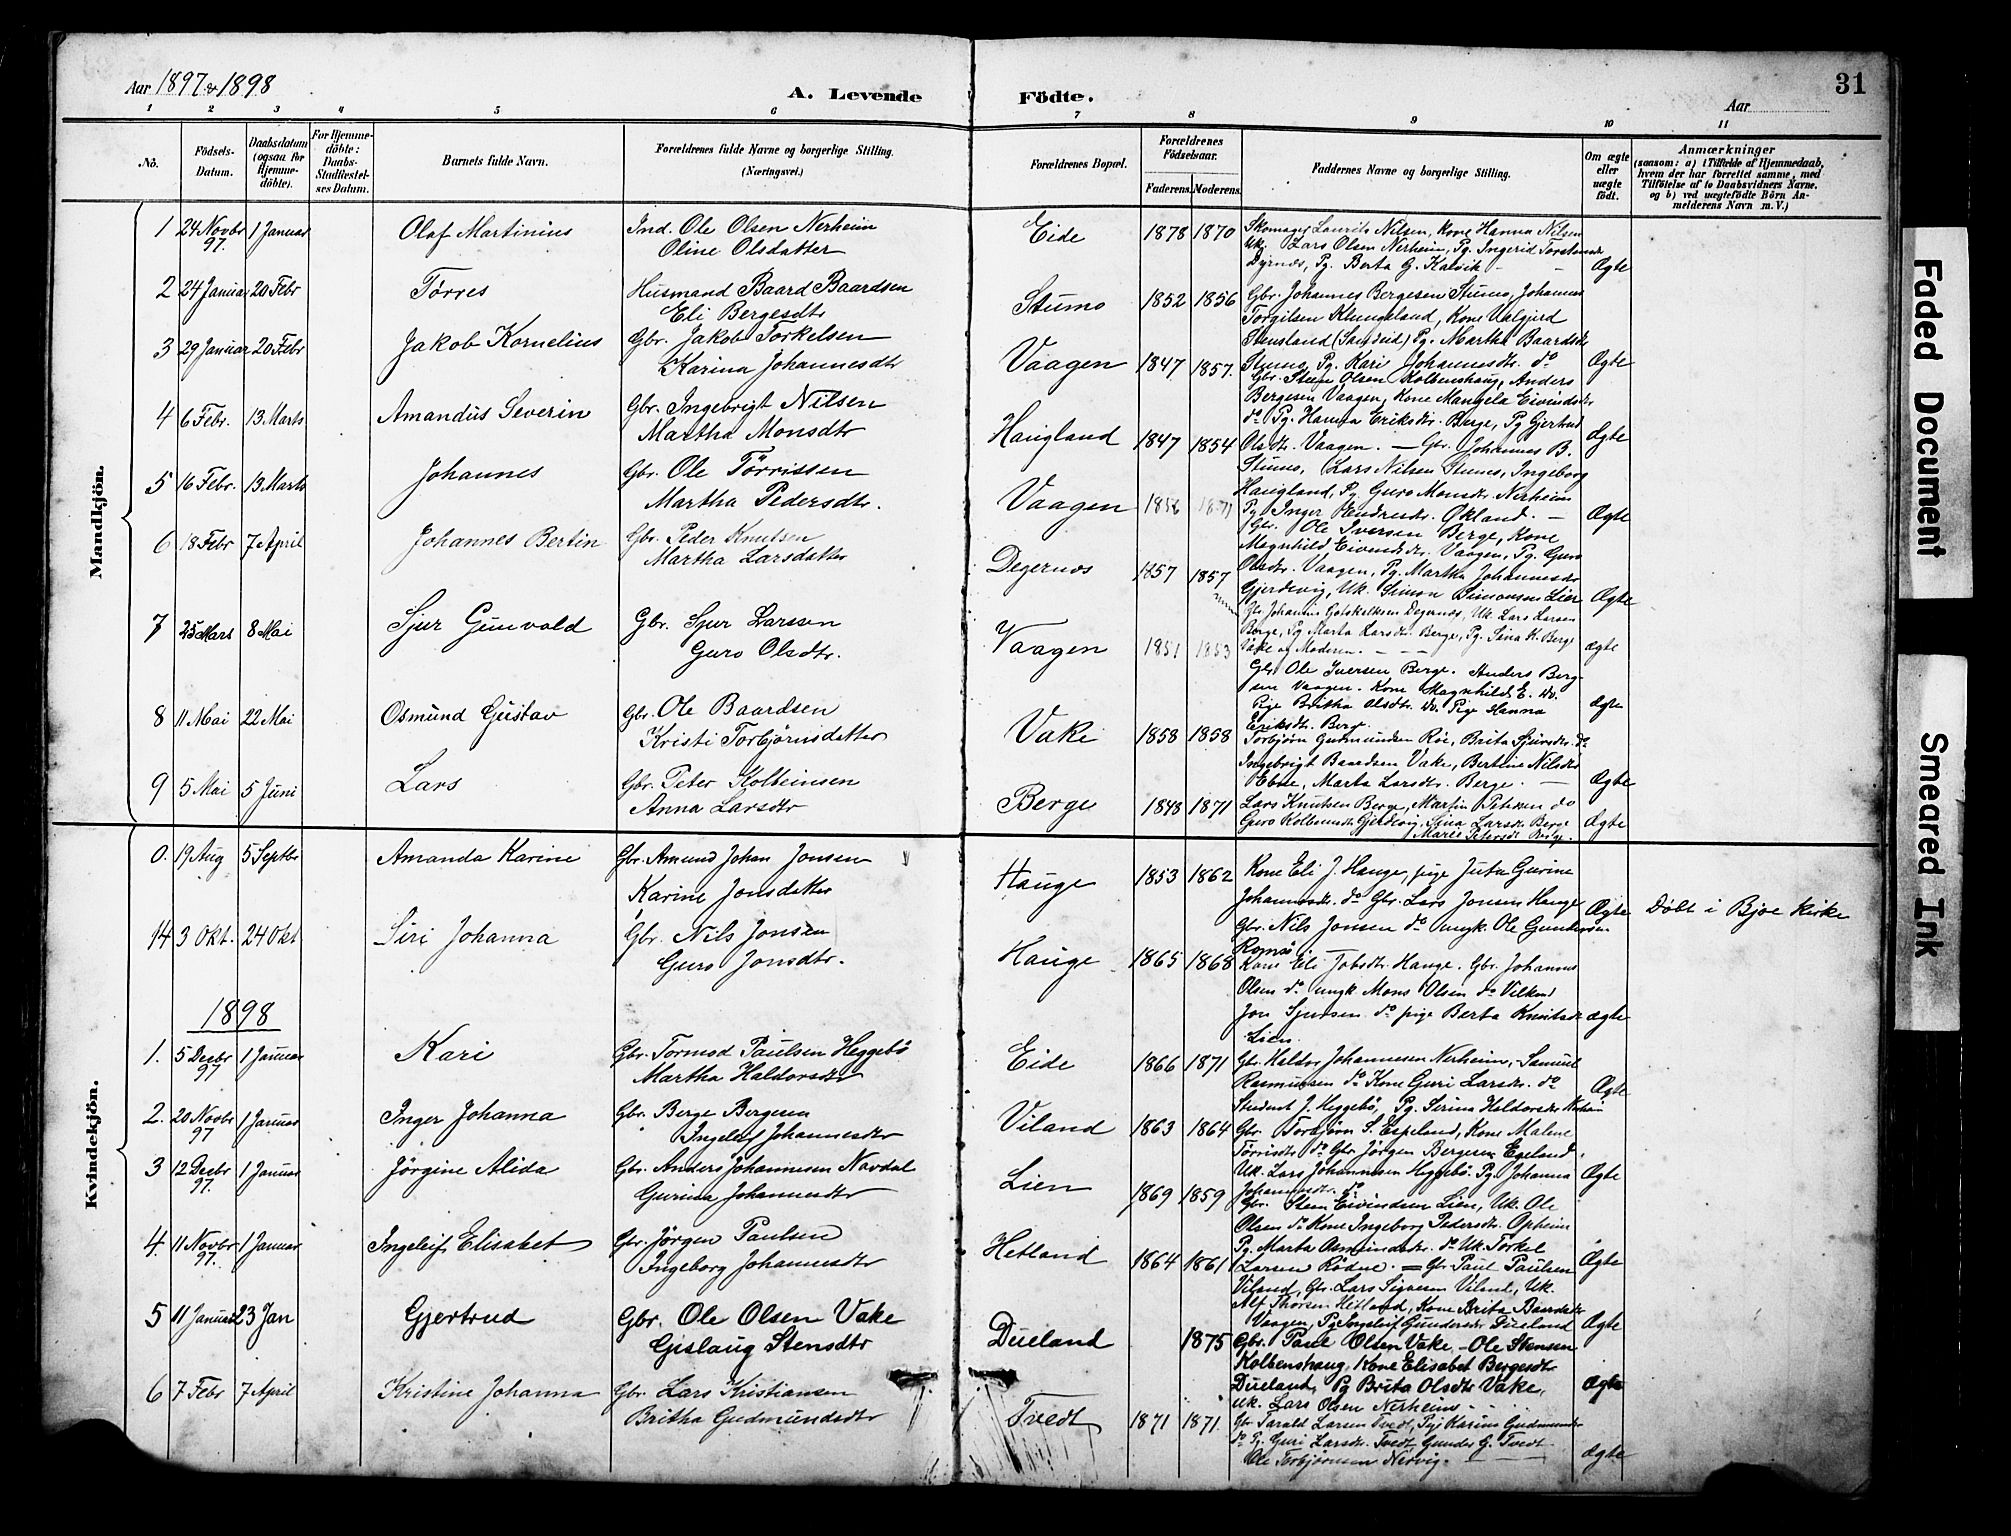 Aar 1897 & 1898
A. Levende Födte.
Aar
31
1 2 3 4 5 6 7 8 9 10 11
No.
Födsels-Datum.
Daabsdatum (ogsaa for Hjemme-döbte).
For Hjemme-döbte: Daabs-Stadfæstel-ses Datum.
Barnets fulde Navn.
Forældrenes fulde Navne og borgerlige Stilling. (Næringsvei.)
Forældrenes Bopæl.
Forældrenes Födselsaar.
Faderens. Moderens.
Faddernes Navne og borgerlige Stilling.
Om ægte eller uægte födt.
Anmærkninger
(saasom: a) i Tilfælde af Hjemmedaab, hvem der har forrettet samme, med Tilföielse af to Daabsvidners Navne. og b) ved uægtefödte Börn An-melderens Navn m. V.)
Mandkjön.
1 24 Novbr 97. 1 Januar Olaf Martinius Ind. Ole Olsen Nerheim
Oline Olsdatter Eide 1878 1870
Skomager Laurits Nilsen, Kone Hanna Nilsen
Uk. Lars Olsen Nerheim, Pg. Ingerid
Dyrnæs, Pg. Berta G. Kalvik - Ægte
2 24 Januar 20 Febr Törres Husmand Baard Baardsen
Eli Bergesdtr Stumo 1852 1856
Gbr. Johannes Bergesen Stumo, Johannes
Torgilsen Klungeland, Kone Valgjerd
Stensland (Sandeid) Pg. Martha Baardsdtr
Stumo Pg. Kari Johannesdtr. do Ægte
3 29 Januar 20 Febr Jakob Kornelius Gbr. Jakob Torkelsen
Karina Johannesdtr Vaagen 1847 1857.
Gbr. Sten Olsen Kolbenshaug, Anders
Bergesen Vaagen, Kone Mangela Eivindsdtr
do Pg. Hanna Eriksdtr. Berge, Pg Gjertrud
Olsdtr. Vaagen. Ægte
4 6 Febr. 13 Marts Amandus Severin Gbr. Ingebrigt Nilsen
Martha Monsdtr Haugland 1847 1854
Gbr. Johannes B.
Stumo, Lars Nilsen Stumo, Ingeborg
Haugland, Pg. Guro Monsdtr. Nerheim
Pg. Inger Økland. - Ægte
5 16 Febr. 13 Marts Johannes Gbr. Ole Törrissen
Martha Pedersdtr. Vaagen 1856 1871
Gbr. Ole Iversen Berge, Kone
Magnhild Eivindsdtr. Vaagen, Pg. Guro
Olsdtr. Vaagen, Pg. Martha Johannesdtr
Gjerdevig, Uk. Simon Simonsen Lier Ægte
6 18 Febr 7 April Johannes Bertin Gbr. Peder Knutsen
Martha Larsdatter Degernæs 1857 1857
Gbr. Johannes Gotskalksen Degernæs, Uk. Lars Larsen
Berge, Pg Marta Larsdtr. Berge, Pg. Sina K. Berge
og Moderen. ægte
7 25 Mars 8 Mai Sjur Gunvald Gbr. Sjur Larssen
Guro Olsdtr. Vaagen 1851 1853
Gbr Ole Iversen Berge. Anders Berg-
sen Vaagen. Kone Magnhild E. do.
Pige Britha Olsdtr. do. Pige Hanna
Eriksdtr. Berge. Ægte
8 11 Mai 22 Mai Osmund Gustav Gbr. Ole Baardsen
Kristi Torbjörnsdatter Vake 1858 1858
Torbjørn Gudmundsen Röe, Brita Sjursdtr. do
Ingebrigt Baardsen Vake, Bertine Nilsdtr
Ebne, Marta Larsdtr. Berge. Ægte
9 5 Mai 5 Juni Lars Gbr. Peter Kolbeinsen
Anna Larsdtr Berge 1848 1871
Lars Knutsen Berge, Martin Petersen do
Guro Gjerdevig, Sina Larsdtr Berge
Marie Petersdtr Berge. Ægte
Kvindekjön.
0. 19 Aug 5 Septbr Amanda Karine Gbr. Amund Johan Jonsen
Karine Jonsdatter Hauge 1853 1862
Kone Eli J. Hauge, pige Juta Gurine
Johannesdtr. do Gbr. Lars Jonsen Hauge
Gbr. Nils Jonsen do ungk. Ole Gundersen
Romsö. Ægte Döbt i Bjoe Kirke
14 3 Okt. 24 Okt Siri Johanna Gbr. Nils Jonsen
Guro Jonsdtr. Hauge 1865 1868
Kone Eli Jobsdtr. Hauge. Gbr. Johannes
Olsen do ungk Mons Olsen do
Jon Sjursen do pige Berta Knutsdtr
Lien. ægte
1898
1. 5 Decbr 97 1 Januar Kari Gbr. Tormod Paulsen Heggebö
Martha Haldorsdtr Eide 1866 1871
Gbr. Haldor Johannesen Nerheim, Samuel
Rasmussen do Kone Guri Larsdtr. do
Student J. Heggebö, Pg. Serina Haldorsdtr Nerheim Ægte
2. 20 Novbr 97 1 Januar Inger Johanna Gbr. Berge Bergesen
Ingeleif Johannesdtr Viland 1863 1864
Gbr. Torbjørn S. Espeland, Kone Malene
Törrisdtr. do Gbr Jörgen Bergesen Egeland.
Uk. Lars Johannesen Heggebö. Pg. Johanna
Johannesdtr. do Ægte
3 12 Decbr 97. 1 Januar Jörgine Alida Gbr. Anders Johannesen Navdal
Gurina Johannesdtr Lien 1869 1859
Gbr. Sten Eivindsen Lien, Uk. Ole
Olsen do Kone Ingeborg Pedersdtr. Opheim
Pg. Marta Osmundsdtr. do Uk. Torkel
Larsen Rödne. Ægte
4. 11 Novbr 97. 1 Januar Ingeleif Elisabet Gbr. Jörgen Paulsen
Ingeborg Johannesdtr Hetland 1864 1861
Gbr Paul Paulsen
Viland, Gbr. Lars Viland, Uk.
Alf Thorsen Hetland, Kone Brita Baardsdtr
Vaagen, Pg Ingeleif Gundersdtr Dueland Ægte
5 11 Januar 23 Jan Gjertrud Gbr. Ole Olsen Vake
Gislaug Stensdtr Dueland 1875
Gbr. Paul Olsen Vake - Ole Stensen
Kolbenshaug, Kone Elisabet Bergesdtr
Dueland, Pg Brita Olsdtr Vake,
uk. Lars Olsen Nerheim - Ægte
6 7 Febr 7 April Kristine Johanna Gbr. Lars Kristiansen
Britha Gudmundsdtr Tvedt 1871 1871.
Gbr Tarald Larsen Tvedt, Pige Karine Gudmundsdtr
do Pg. Guri Larsdtr. Tvedt Gunder G. Tvedt
Ole Torbjörnsen Nervig. ægte
Faded Document
Smeared Ink